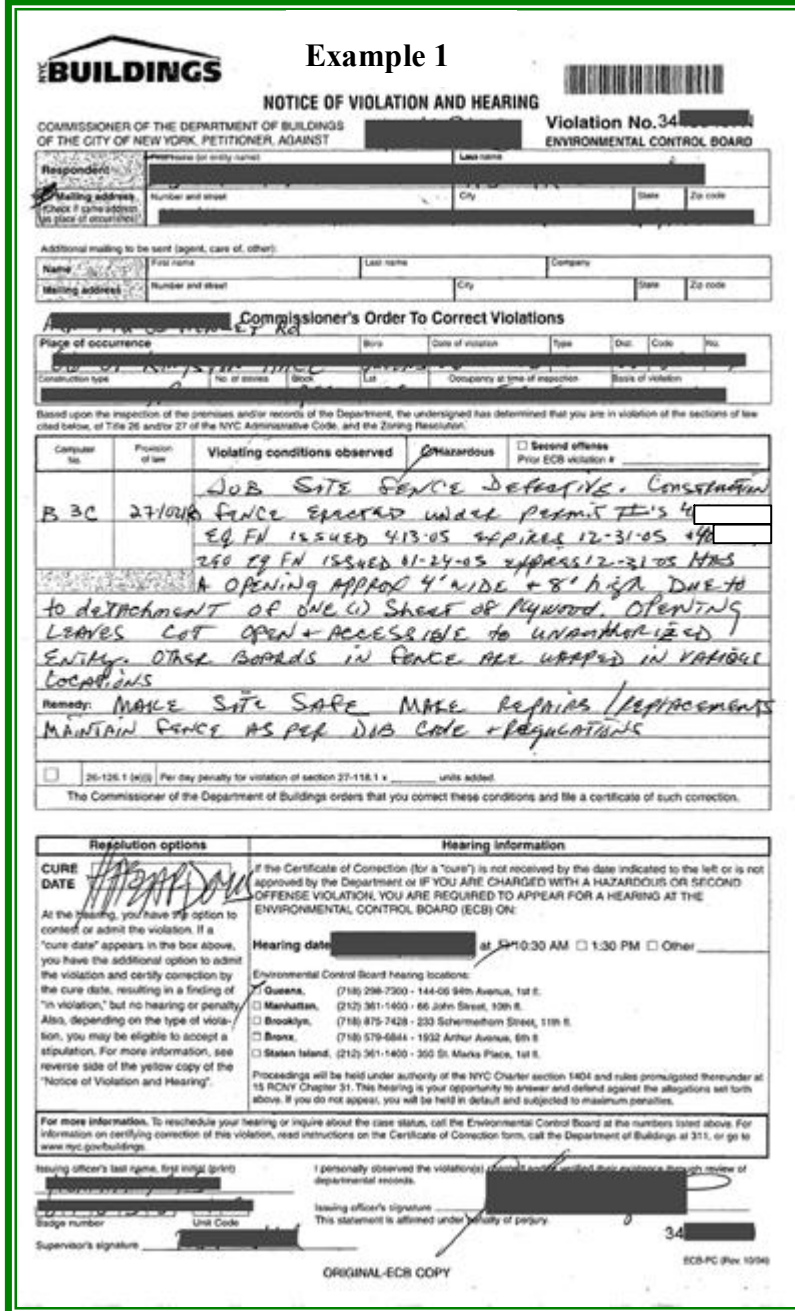 NYC BUILDINGS
Example 1
NOTICE OF VIOLATION AND HEARING
COMMISSIONER OF THE DEPARTMENT OF BUILDINGS
OF THE CITY OF NEW YORK, PETITIONER, AGAINST
Violation No. 34
ENVIRONMENTAL CONTROL BOARD
Respondent (or entity name) Last name
Mailing address Number and street City State Zip code
(Check if same address
as place of occurrence)
Additional mailing to be sent (agent, care of, other):
Name First name Last name Company
Mailing address Number and street City State Zip code
Commissioner's Order To Correct Violations
Place of occurrence Boro Date of violation Type Dist. Code No.
Construction type No. of stories Block Lot Occupancy at time of inspection Basis of violation
Based upon the inspection of the premises and/or records of the Department, the undersigned has determined that you are in violation of the sections of law
cited below, of Title 26 and/or 27 of the NYC Administrative Code, and the Zoning Resolution.
Computer No. Provision of law Violating conditions observed Hazardous Second offense
Prior ECB violation #
JOB SITE FENCE DEFECTIVE. CONSTRUCTION
B 3C FENCE ERECTED under PERMIT #'s 4
EQ FN ISSUED 4-13-05 EXPIRES 12-31-05 +
EQ FN ISSUED 01-24-05 EXPIRES 12-31-05 HAS
A OPENING APPROX 4' WIDE + 8' high DUE to
to detACHMENT OF ONE (1) Sheet OF PlyWOOD. OPENING
LEAVES LOT OPEN + ACCESSIBLE to UNAUTHORIZED
ENTRY. OTHER BOARDS IN FENCE ARE WARPED IN VARIOUS
LOCATIONS
Remedy: MAKE SITE SAFE MAKE REPAIRS / REPLACEMENTS
MAINTAIN FENCE AS PER DOB CODE + REGULATIONS
26-126.1 Per day penalty for violation of section 27-118.1 x units added.
The Commissioner of the Department of Buildings orders that you correct these conditions and file a certificate of such correction.
Resolution options
CURE DATE HAZARDOUS
At the hearing, you have the option to
contest or admit the violation. If a
"cure date" appears in the box above,
you have the additional option to admit
the violation and certify correction by
the cure date, resulting in a finding of
"in violation," but no hearing or penalty.
Also, depending on the type of viola-
tion, you may be eligible to accept a
stipulation. For more information, see
reverse side of the yellow copy of the
"Notice of Violation and Hearing".
Hearing information
If the Certificate of Correction (for a "cure") is not received by the date indicated to the left or is not
approved by the Department or IF YOU ARE CHARGED WITH A HAZARDOUS OR SECOND
OFFENSE VIOLATION, YOU ARE REQUIRED TO APPEAR FOR A HEARING AT THE
ENVIRONMENTAL CONTROL BOARD (ECB) ON:
Hearing date at 10:30 AM 1:30 PM Other
Environmental Control Board hearing locations:
Queens, (718) 298-7300 - 144-06 94th Avenue, 1st fl.
Manhattan, (212) 361-1400 - 66 John Street, 10th fl.
Brooklyn, (718) 875-7428 - 233 Schermerhorn Street, 11th fl.
Bronx, (718) 579-6844 - 1932 Arthur Avenue, 6th fl
Staten Island, (212) 361-1400 - 350 St. Marks Place, 1st fl.
Proceedings will be held under authority of the NYC Charter section 1404 and rules promulgated thereunder at
15 RCNY Chapter 31. This hearing is your opportunity to answer and defend against the allegations set forth
above. If you do not appear, you will be held in default and subjected to maximum penalties.
For more information. To reschedule your hearing or inquire about the case status, call the Environmental Control Board at the numbers listed above. For
information on certifying correction of this violation, read instructions on the Certificate of Correction form, call the Department of Buildings at 311, or go to
www.nyc.gov/buildings.
Issuing officer's last name, first initial (print)
I personally observed the violation(s) verified their existence through review of
departmental records.
Issuing officer's signature
Badge number Unit Code
This statement is affirmed under penalty of perjury.
34
Supervisor's signature
ECB-PC (Rev. 10/04)
ORIGINAL-ECB COPY